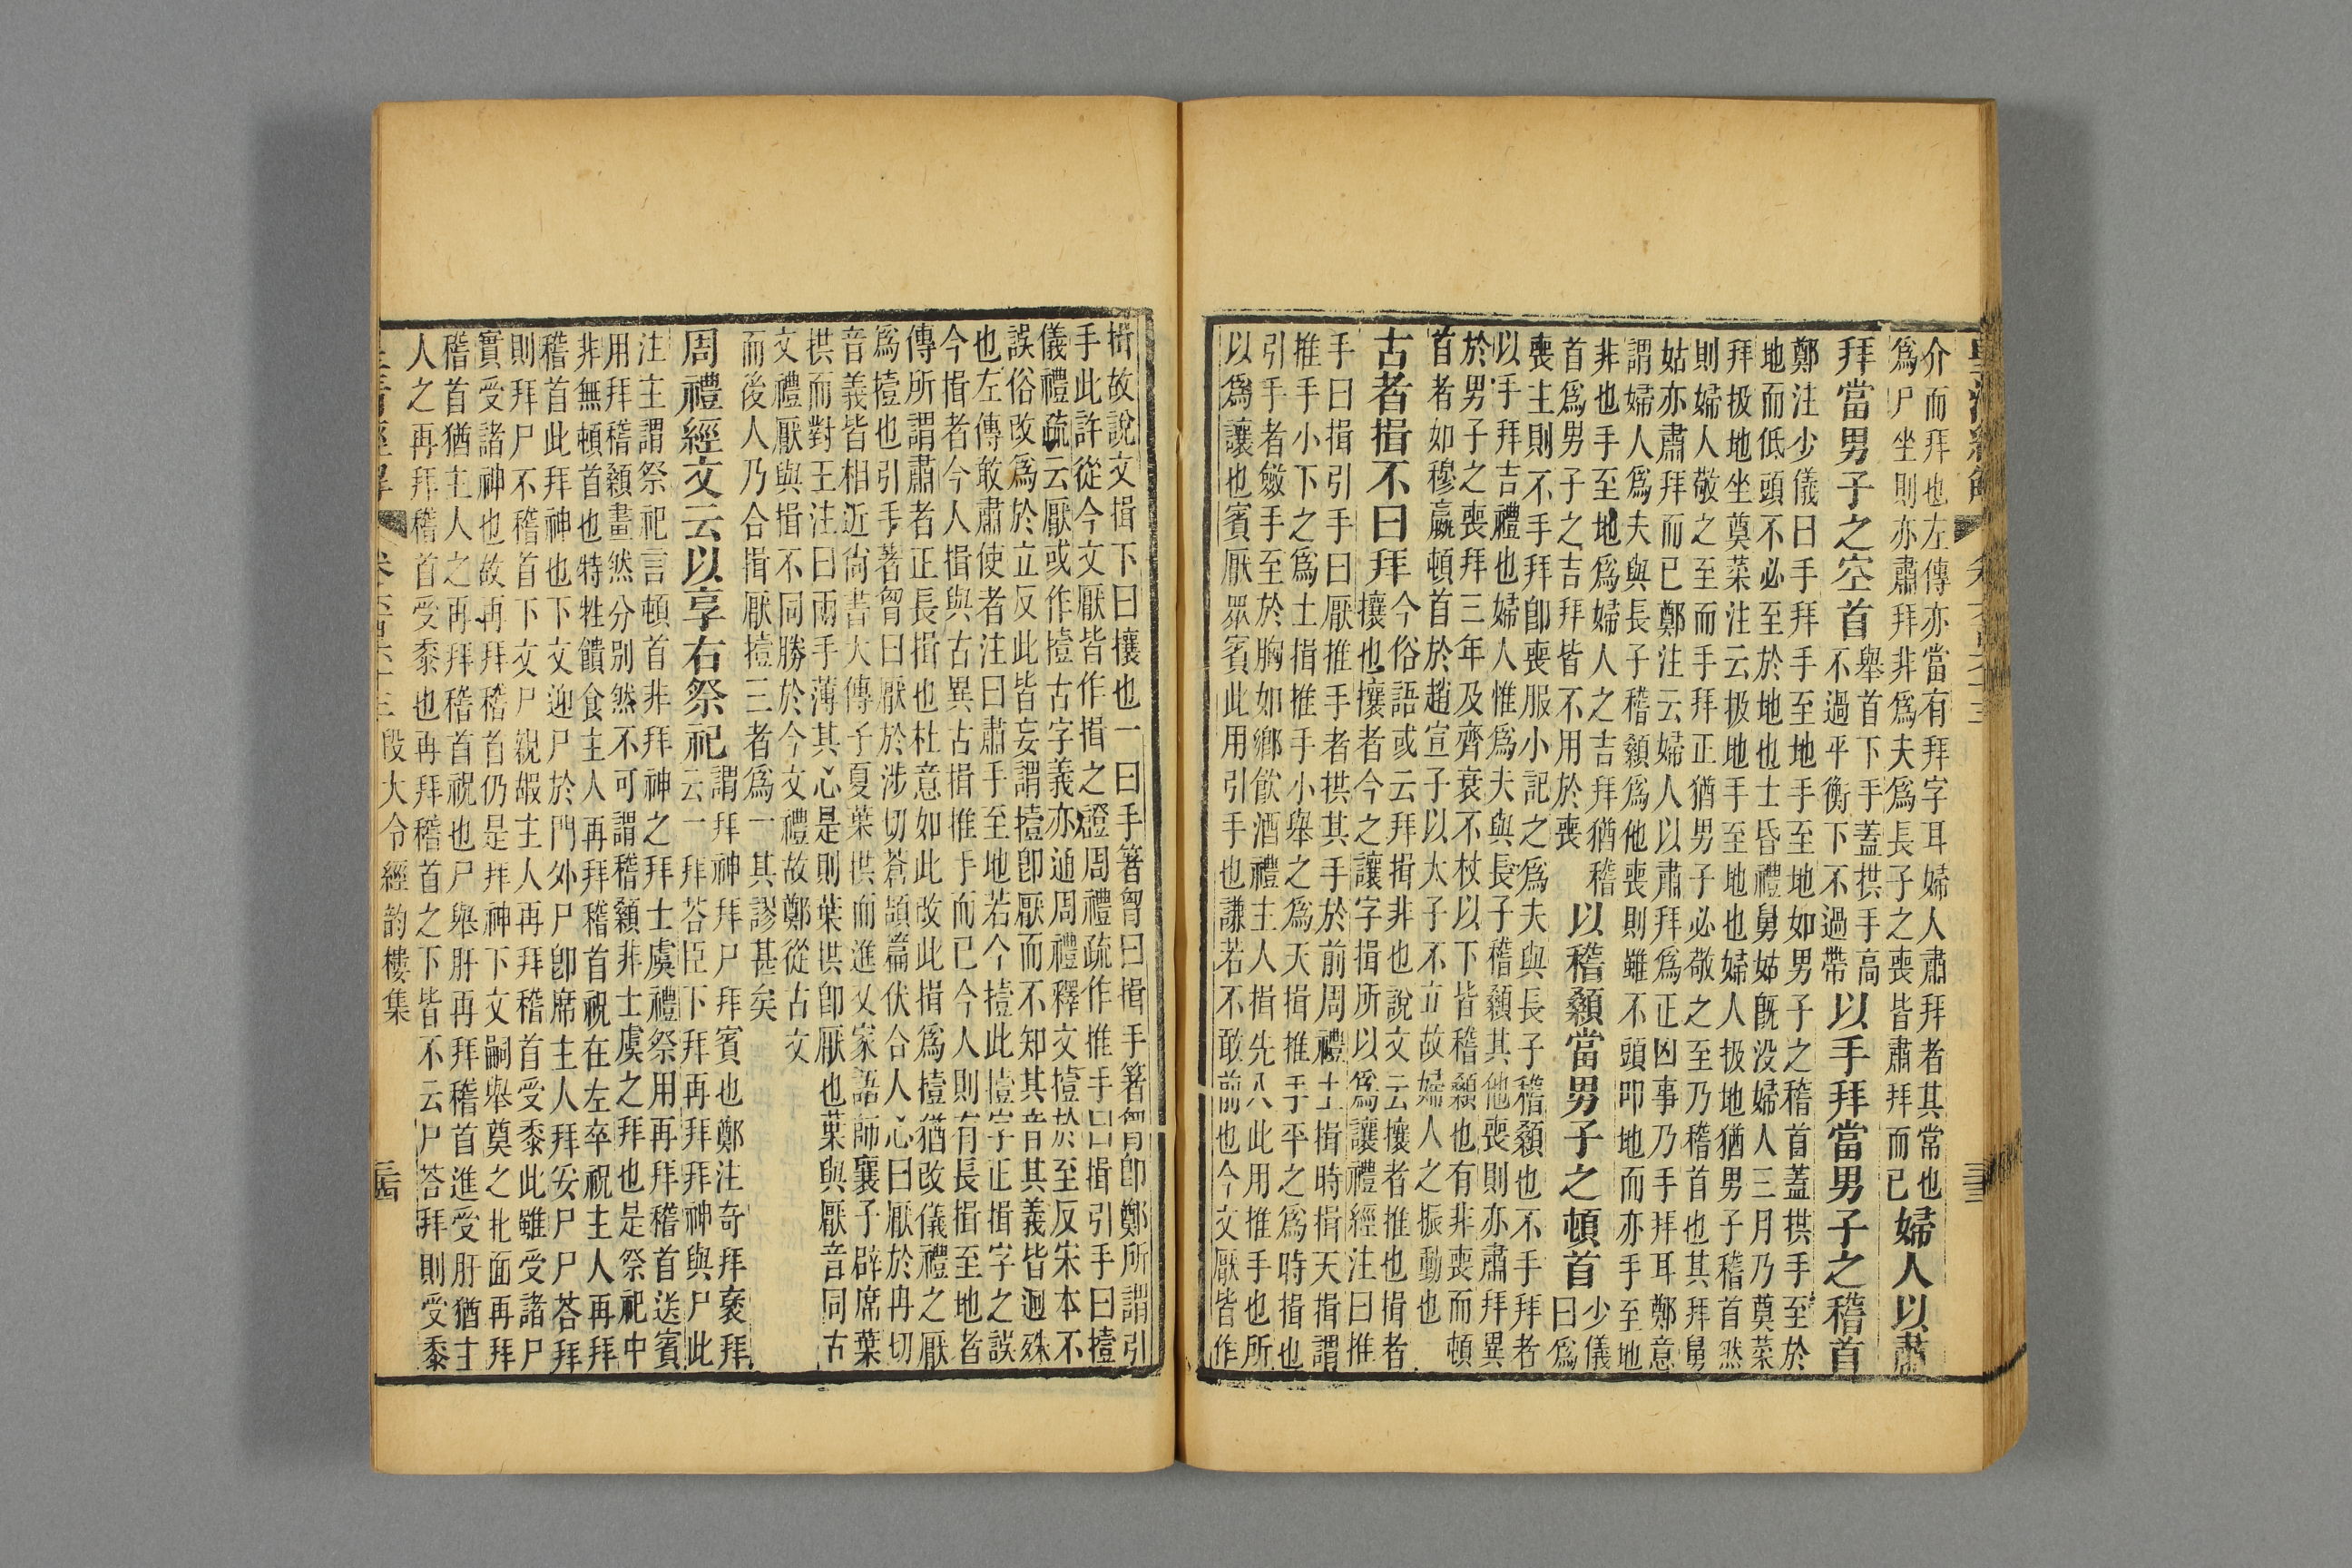 皇清經解 卷六百六十三 三三
介而拜也左傳亦當有拜字耳婦人肅拜者其常也
爲尸坐則亦肅拜非爲夫爲長子之喪皆肅拜而已
婦人以肅
拜當男子之空首
舉首下手蓋拱手高
不過平衡下不過帶
以手拜當男子之稽首
鄭注少儀曰手拜手至地手至地如男子之稽首蓋拱手至於
地而低頭不必至於地也士昏禮舅姑旣没婦人三月乃奠菜
拜扱地坐奠菜注云扱地手至地也婦人扱地猶男子稽首然
則婦人敬之至而手拜正猶男子必敬之至乃稽首也其拜舅
姑亦肅拜而已鄭注云婦人以肅拜爲正凶事乃手拜耳鄭意
謂婦人爲夫與長子稽顙爲他喪則雖不頭叩地而亦手至地
非也手至地爲婦人之吉拜猶稽
首爲男子之吉拜皆不用於喪
以稽顙當男子之頓首
少儀
曰爲
喪主則不手拜卽喪服小記之爲夫與長子稽顙也不手拜者
以手拜吉禮也婦人惟爲夫與長子稽顙其他喪則亦肅拜異
於男子之喪拜三年及齊衰不杖以下皆稽顙也有非喪而頓
首者如穆嬴頓首於趙宣子以太子不立故婦人之振動也
古者揖不曰拜
今俗語或云拜揖非也說文云攘者推也揖者
攘也攘者今之讓字揖所以爲讓禮經注曰推
手曰揖引手曰厭推手者拱其手於前周禮土揖時揖天揖謂
推手小下之爲土揖推手小舉之爲天揖推手平之爲時揖也
引手者斂手至於胸如鄉飲酒禮主人揖先入此用推手也所
以爲讓也賓厭眾賓此用引手也謙若不敢前也今文厭皆作
揖故說文揖下曰攘也一曰手箸胷曰揖手箸胷卽鄭所謂引
手此許從今文厭皆作揖之證周禮疏作推手曰揖引手曰撎
儀禮疏云厭或作撎古字義亦通周禮釋文撎於至反宋本不
誤俗改爲於立反此皆妄謂撎卽厭而不知其音其義皆迥殊
也左傳敢肅使者注曰肅手至地若今撎此撎字正揖字之誤
今揖者今人揖與古異古揖推手而已今人則有長揖至地者
傳所謂肅者正長揖也杜意如此改此揖爲撎猶改儀禮之厭
爲撎也引手著胷曰厭於涉切蒼頡篇伏合人心曰厭於冉切
音義皆相近尙書大傳子夏葉拱而進又家語師襄子辟席葉
拱而對王注曰兩手薄其心是則葉拱卽厭也葉與厭音同古
文禮厭與揖不同勝於今文禮故鄭從古文
而後人乃合揖厭撎三者爲一其謬甚矣
周禮經文云以享右祭祀
謂拜神拜尸拜賓也鄭注奇拜褒拜
云一拜荅臣下拜再拜拜神與尸此
注主謂祭祀言頓首非拜神之拜士虞禮祭用再拜稽首送賓
用拜稽顙畫然分別然不可謂稽顙非士虞之拜也是祭祀中
非無頓首也特牲饋食主人再拜稽首祝在左卒祝主人再拜
稽首此拜神也下文迎尸於門外尸卽席主人拜妥尸尸荅拜
則拜尸不稽首下文尸親嘏主人再拜稽首受黍此雖受諸尸
實受諸神也故再拜稽首仍是拜神下文嗣舉奠之北面再拜
稽首猶主人之再拜稽首祝也尸舉肝再拜稽首進受肝猶主
人之再拜稽首受黍也再拜稽首之下皆不云尸荅拜則受黍
皇清經解 卷六百六十三 段大令經韵樓集 三四